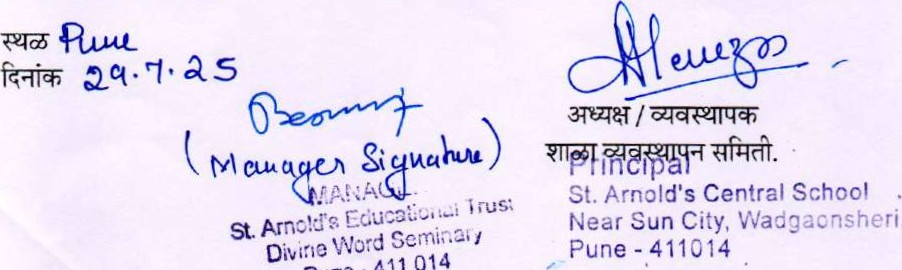 स्थळ Pune
दिनांक 29.7.25
(Manager Signature)
MANAG
St. Arnold's Educational Trust
Divine Word Seminary
Pune - 411 014
अध्यक्ष / व्यवस्थापक
शाळा व्यवस्थापन समिती.
Principal
St. Arnold's Central School
Near Sun City, Wadgaonsheri
Pune - 411014